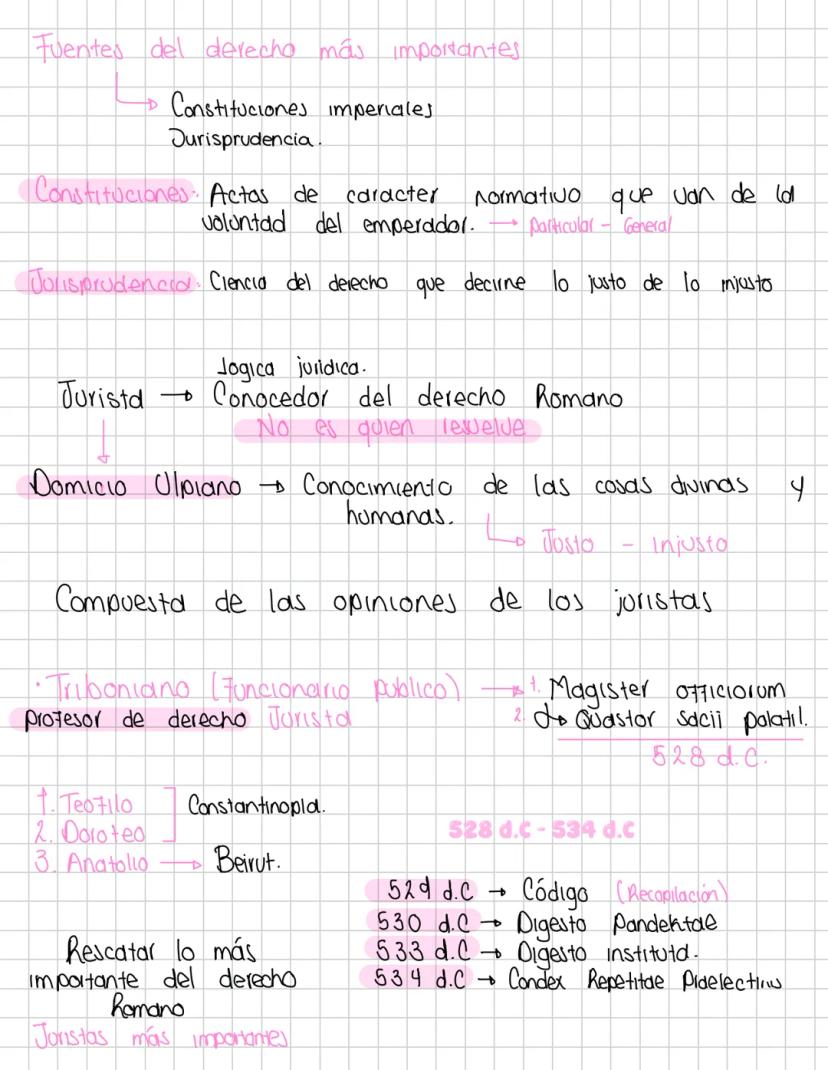 Fuentes del derecho más importantes
Constituciones imperiales
Jurisprudencia.
Constituciones: Actos de caracter normativo que van de la
voluntad del emperador. → particular - General
Jurisprudencia: Ciencia del derecho que decirne lo justo de lo injusto
logica juridica.
Jurista → Conocedor del derecho Romano
No es quien resuelve
Domicio Ulpiano → Conocimiento de las cosas divinas y
humanas.
Justo - injusto
Compuesta de las opiniones de los juristas
· Triboniano (Funcionario publico) → 1. Magister officiorum
profesor de derecho Jurista 2. Quastor sacii palatil.
528 d.C.
1. Teofilo
Constantinopla.
2. Doroteo
528 d.C - 534 d.C
3. Anatolio → Beirut.
529 d.C → Código (Recopilación)
530 d.C → Digesto Pandektae
533 d.C → Digesto instituta.
534 d.C → Condex Repetitae
Rescatar lo más
importante del derecho
Romano
Juristas más importantes